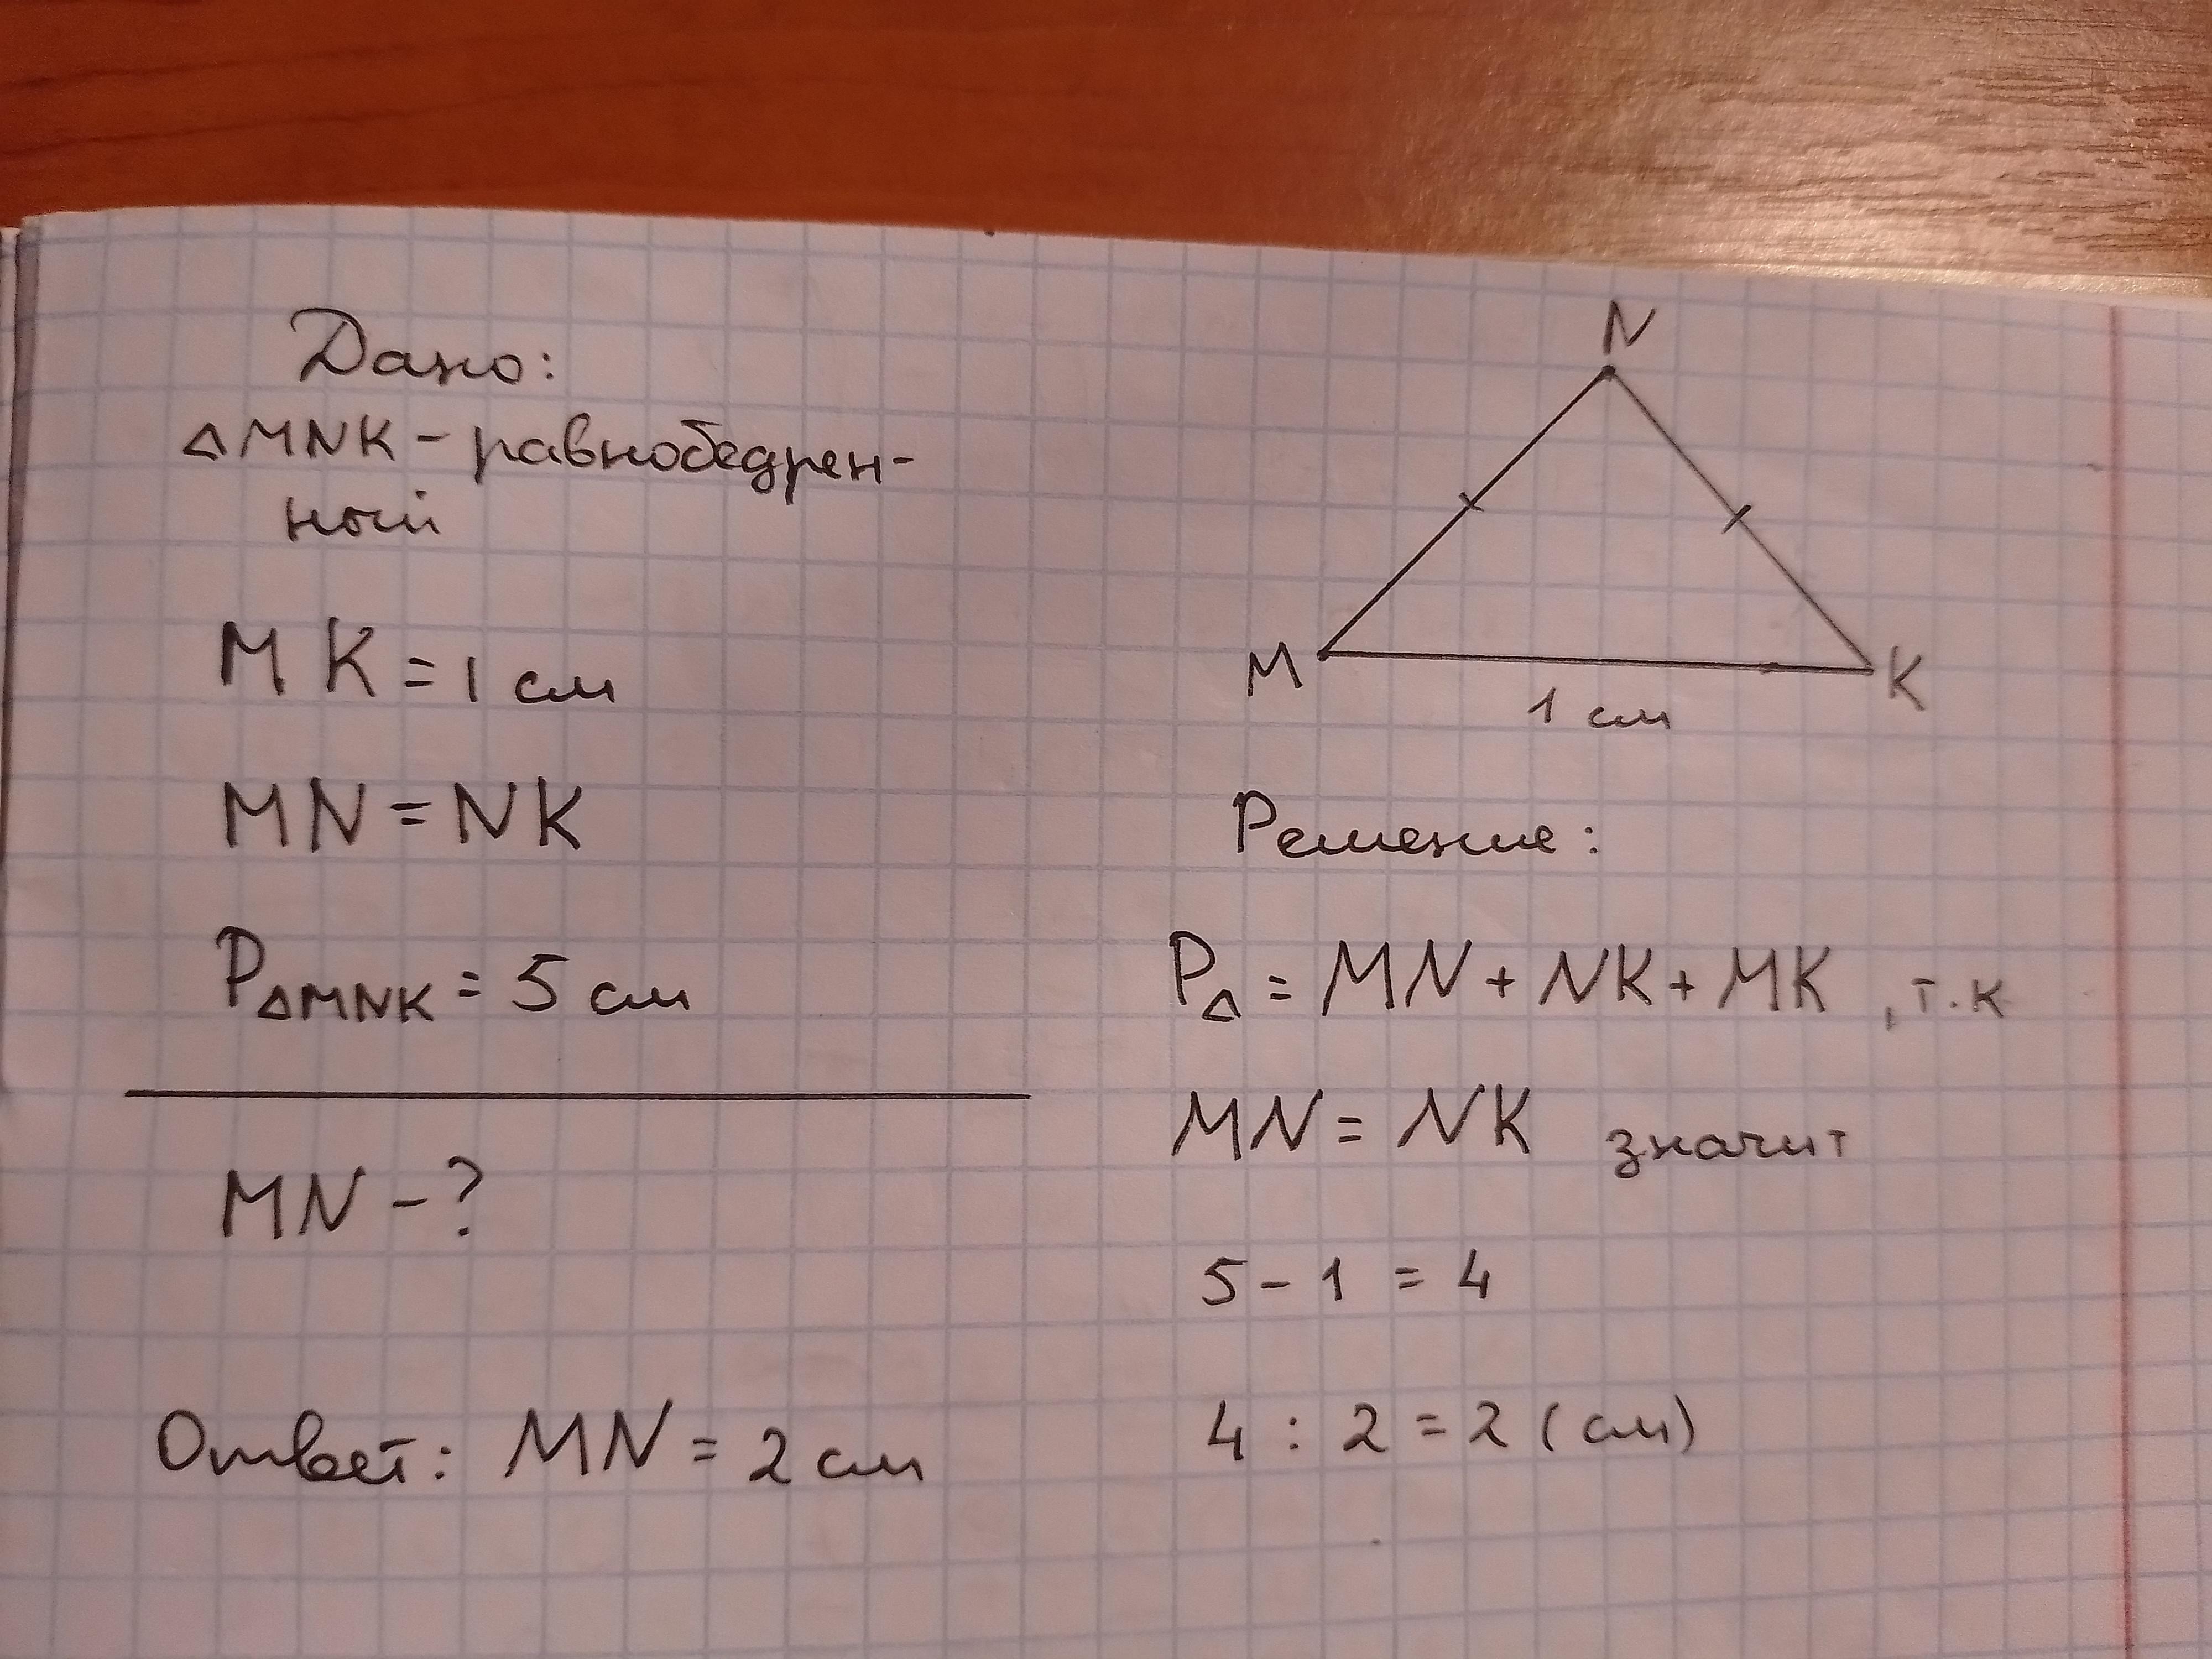 Дано:
△MNK - равнобедрен-
ный
MK = 1 см
MN = NK
P△MNK = 5 см
MN - ?
Ответ: MN = 2 см
N
M
K
1 см
Решение:
P△ = MN + NK + MK , т.к
MN = NK значит
5 - 1 = 4
4 : 2 = 2 (см)